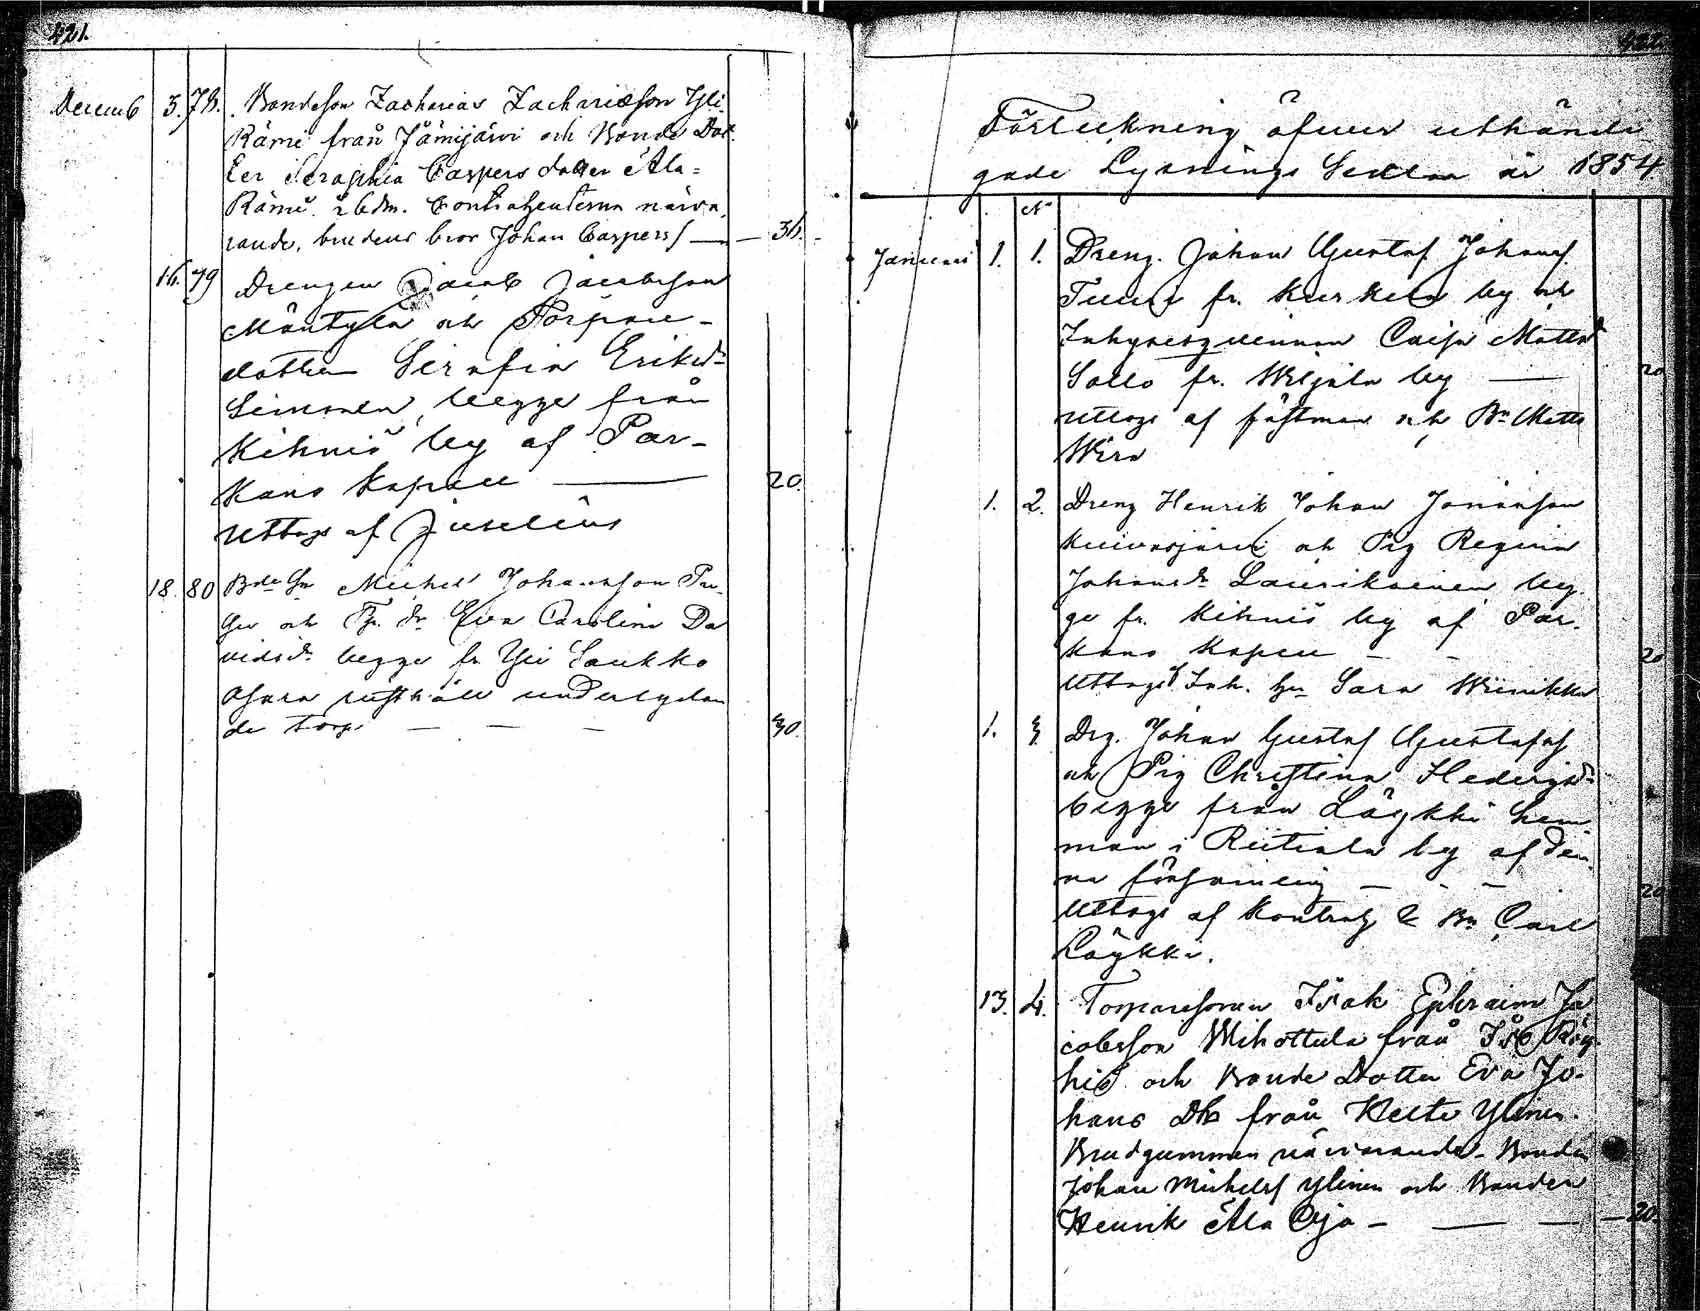 421.
Decemb 3. 78. Bondeson Zacharias Zachariesson Yli
Rämi från Jämijärvi och Bonde Dot
ter Seraphia Caspers dotter Ala-
Rämi. ibdm. Contrahenterna närva
rande, brudens bror Johan Caspers — 36.
16. 79 Drengen Jacob Jacobsson
Mäntylä och Torpare-
dotter Serafia Eriksdr
Simonen, begge från
Kihniö by af Par-
kano Kapell — 20.
Uttogs af Juselius
18. 80 Bde Sn Michel Johansson
och Tp. dr Eva Carolina Da
vidsdr begge fr Yli Saukko
rusthåll underlydan
de torp. — — — 30.
Förteckning öfver uthändi
gade Lysnings Sedlar år 1854
No
Januari 1. 1. Dreng. Johan Gustaf Johans.
fr. Kurkela by och
Inhysesqvinnan Caisa Mattsd
Sallo fr. Wiljala by — 20
Uttogs af fästman och Bn Matts
Wira
1. 2. Dreng Henrik Johan Jonansson
Kuivasjärvi och Pig Regina
Johansdr Laurikainen, beg
ge fr. Kihniö by af Par-
kano Kapell — — 20
Uttogs af Inh. hn Sara Wiinikka
1. 3. Drg. Johan Gustaf Gustafsf
och Pig Christina Hedevigsdr
begge från Löykki hem
man i Riitiala by af den
na församling — — — 20
Uttogs af Kontrah & Bn Carl
Löykki.
13. 4. Torparesonen Isak Ephraim Ja
cobsson Mihottula från Iso Röy
hiö och Bonde Dotter Eva Jo-
hans Dr från Kelte Ylinen.
Brudgummen närvarande. Bonden
Johan Michelsf Ylinen och Bonden
Henrik Ala Oja — — — 20.